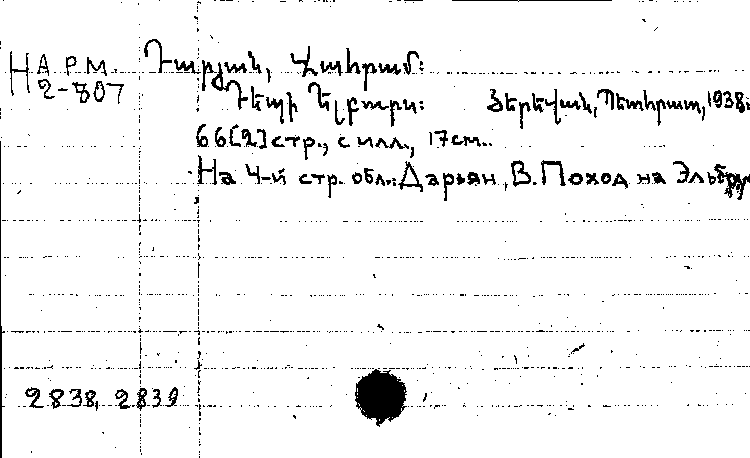 НАРМ. Դարյան, Վահրամ:
2-807
Դեպի Ելբուրս: Յերեվան, Պետհրատ, 1938:
66[2]стр., с илл., 17см.
На 4-й стр. обл.: Дарьян, В. Поход на Эльбрус
2838, 2839